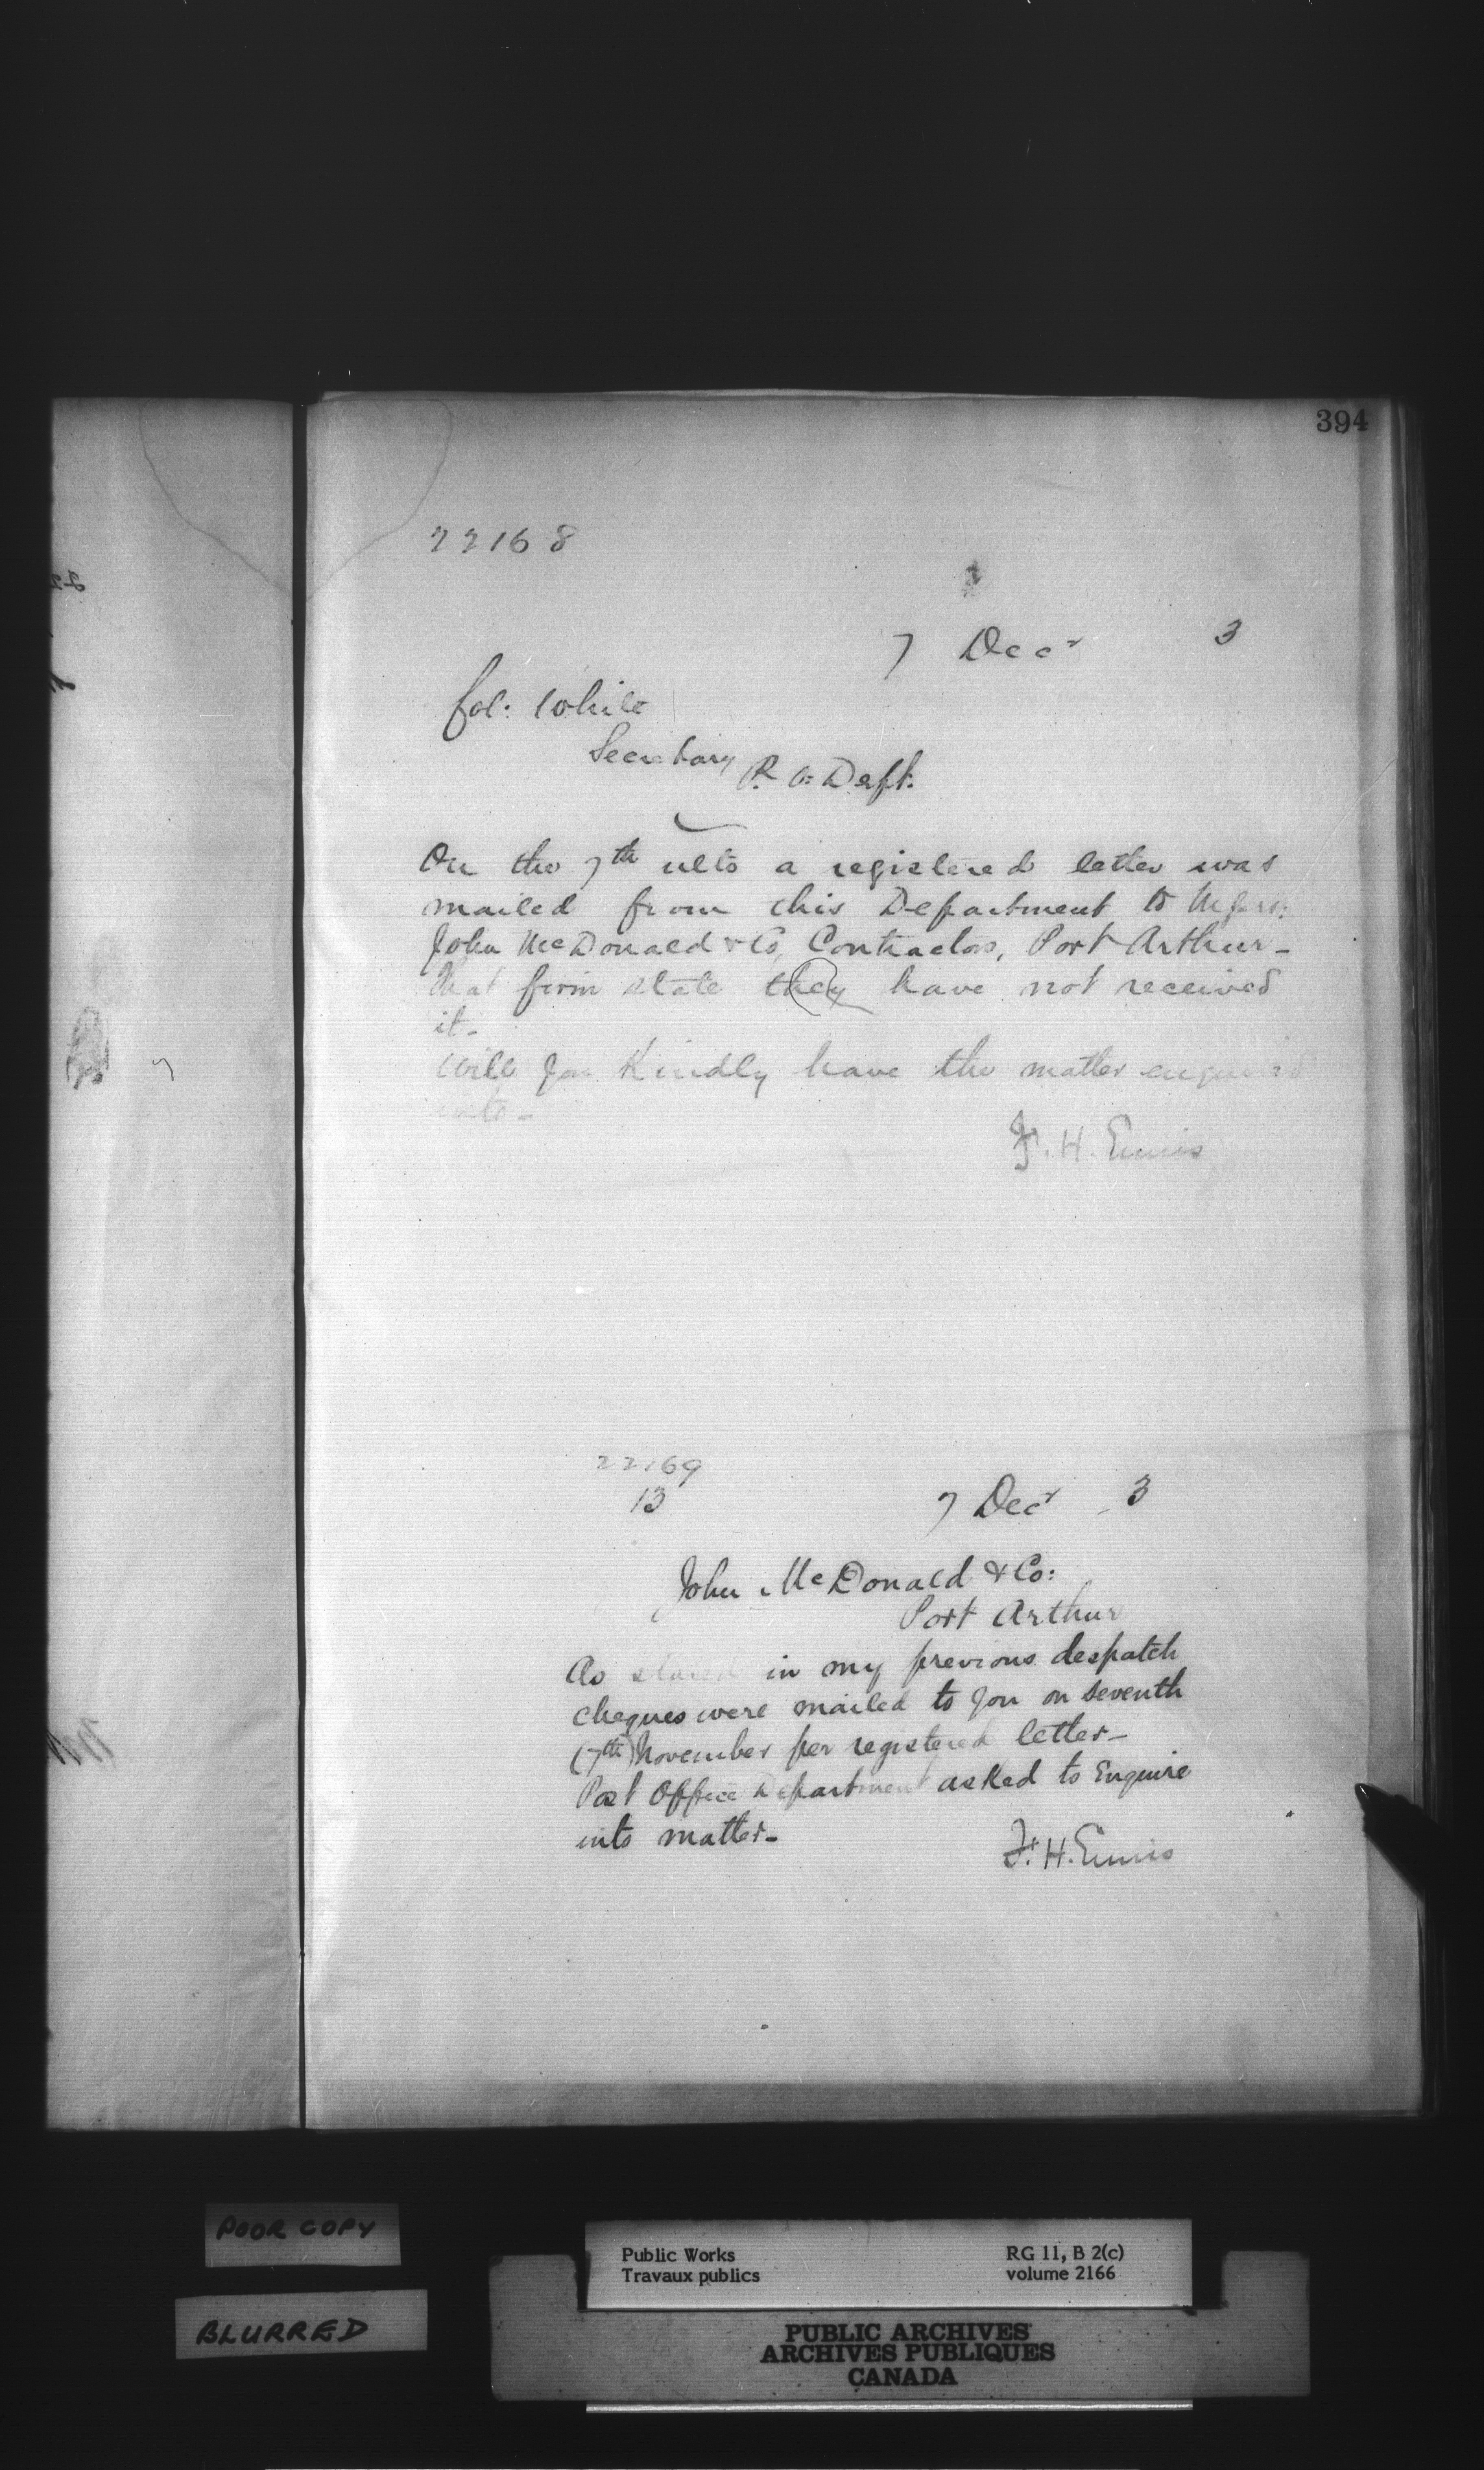 394
22168
7 Decr 3
Col: White
Secretary P. O: Dept:
On the 7th ulto a registered letter was
mailed from this Department to Messrs:
John McDonald & Co, Contractors, Port Arthur_
that firm state they have not received
it_
Will you Kindly have the matter enquired
into_
F. H. Ennis
22169
13
7 Decr 3
John McDonald & Co:
Port Arthur
As stated in my previous despatch
cheques were mailed to you on seventh
(7th) November per registered letter_
Post Office Department asked to Enquire
into matter_
F. H. Ennis
POOR COPY
BLURRED
Public Works
Travaux publics
RG 11, B 2(c)
volume 2166
PUBLIC ARCHIVES
ARCHIVES PUBLIQUES
CANADA